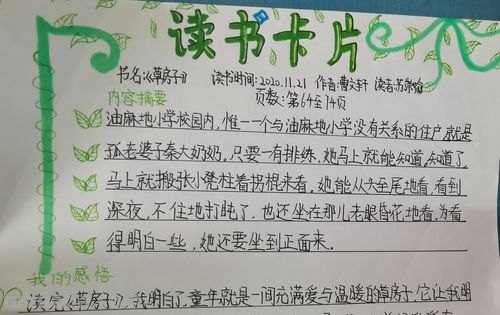 读书卡片
书名:《草房子》 读书时间:2020.11.21 作者:曹文轩 读者:苏
页数:第64至74页
内容摘要
油麻地小学校园内,惟一个与油麻地小学没有关系的住户就是
孤老婆子秦大奶奶,只要一有排练,她马上就能知道,知道了,
马上就搬张小凳柱着拐棍来看,她能从头至尾地看,看到
深夜,不住地打盹了,也还坐在那儿老眼昏花地看,为看
得明白一些,她还要坐到正面来.
我的感悟
读完《草房子》,我明白了,童年就是一间充满爱与温暖的草房子,它让我明